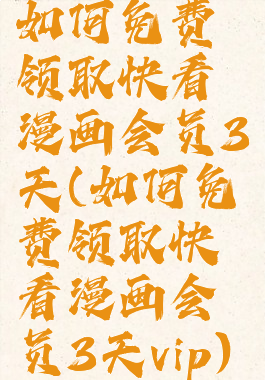 如何免费
领取快看
漫画会员3
天(如何免
费领取快
看漫画会
员3天vip)